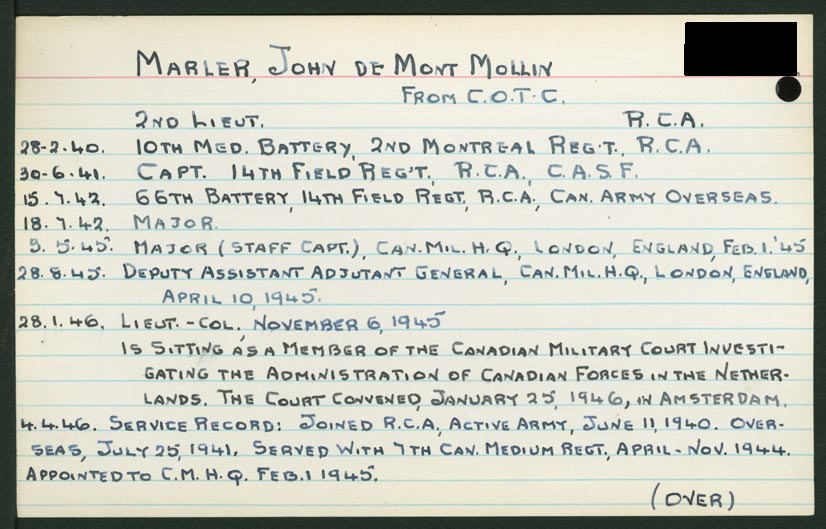 MARLER, JOHN DE MONT MOLLIN
FROM C.O.T.C.
2ND LIEUT. R.C.A.
28-2-40. 10TH MED. BATTERY, 2ND MONTREAL REG'T., R.C.A.
30-6-41. CAPT. 14TH FIELD REG'T, R.C.A., C.A.S.F.
15.7.42. 66TH BATTERY, 14TH FIELD REGT, R.C.A., CAN. ARMY OVERSEAS.
18.7.42. MAJOR.
5.5.45. MAJOR (STAFF CAPT.), CAN. MIL. H.Q., LONDON, ENGLAND, FEB. 1.'45
28.8.45. DEPUTY ASSISTANT ADJUTANT GENERAL, CAN. MIL. H.Q., LONDON, ENGLAND,
APRIL 10, 1945.
28.1.46. LIEUT.-COL., NOVEMBER 6, 1945
IS SITTING AS A MEMBER OF THE CANADIAN MILITARY COURT INVESTI-
GATING THE ADMINISTRATION OF CANADIAN FORCES IN THE NETHER-
LANDS. THE COURT CONVENED, JANUARY 25, 1946, IN AMSTERDAM.
4.4.46. SERVICE RECORD: JOINED R.C.A, ACTIVE ARMY, JUNE 11, 1940. OVER-
SEAS, JULY 25, 1941. SERVED WITH 7TH CAN. MEDIUM REGT., APRIL - NOV. 1944.
APPOINTED TO C.M.H.Q. FEB. 1 1945.
(OVER)